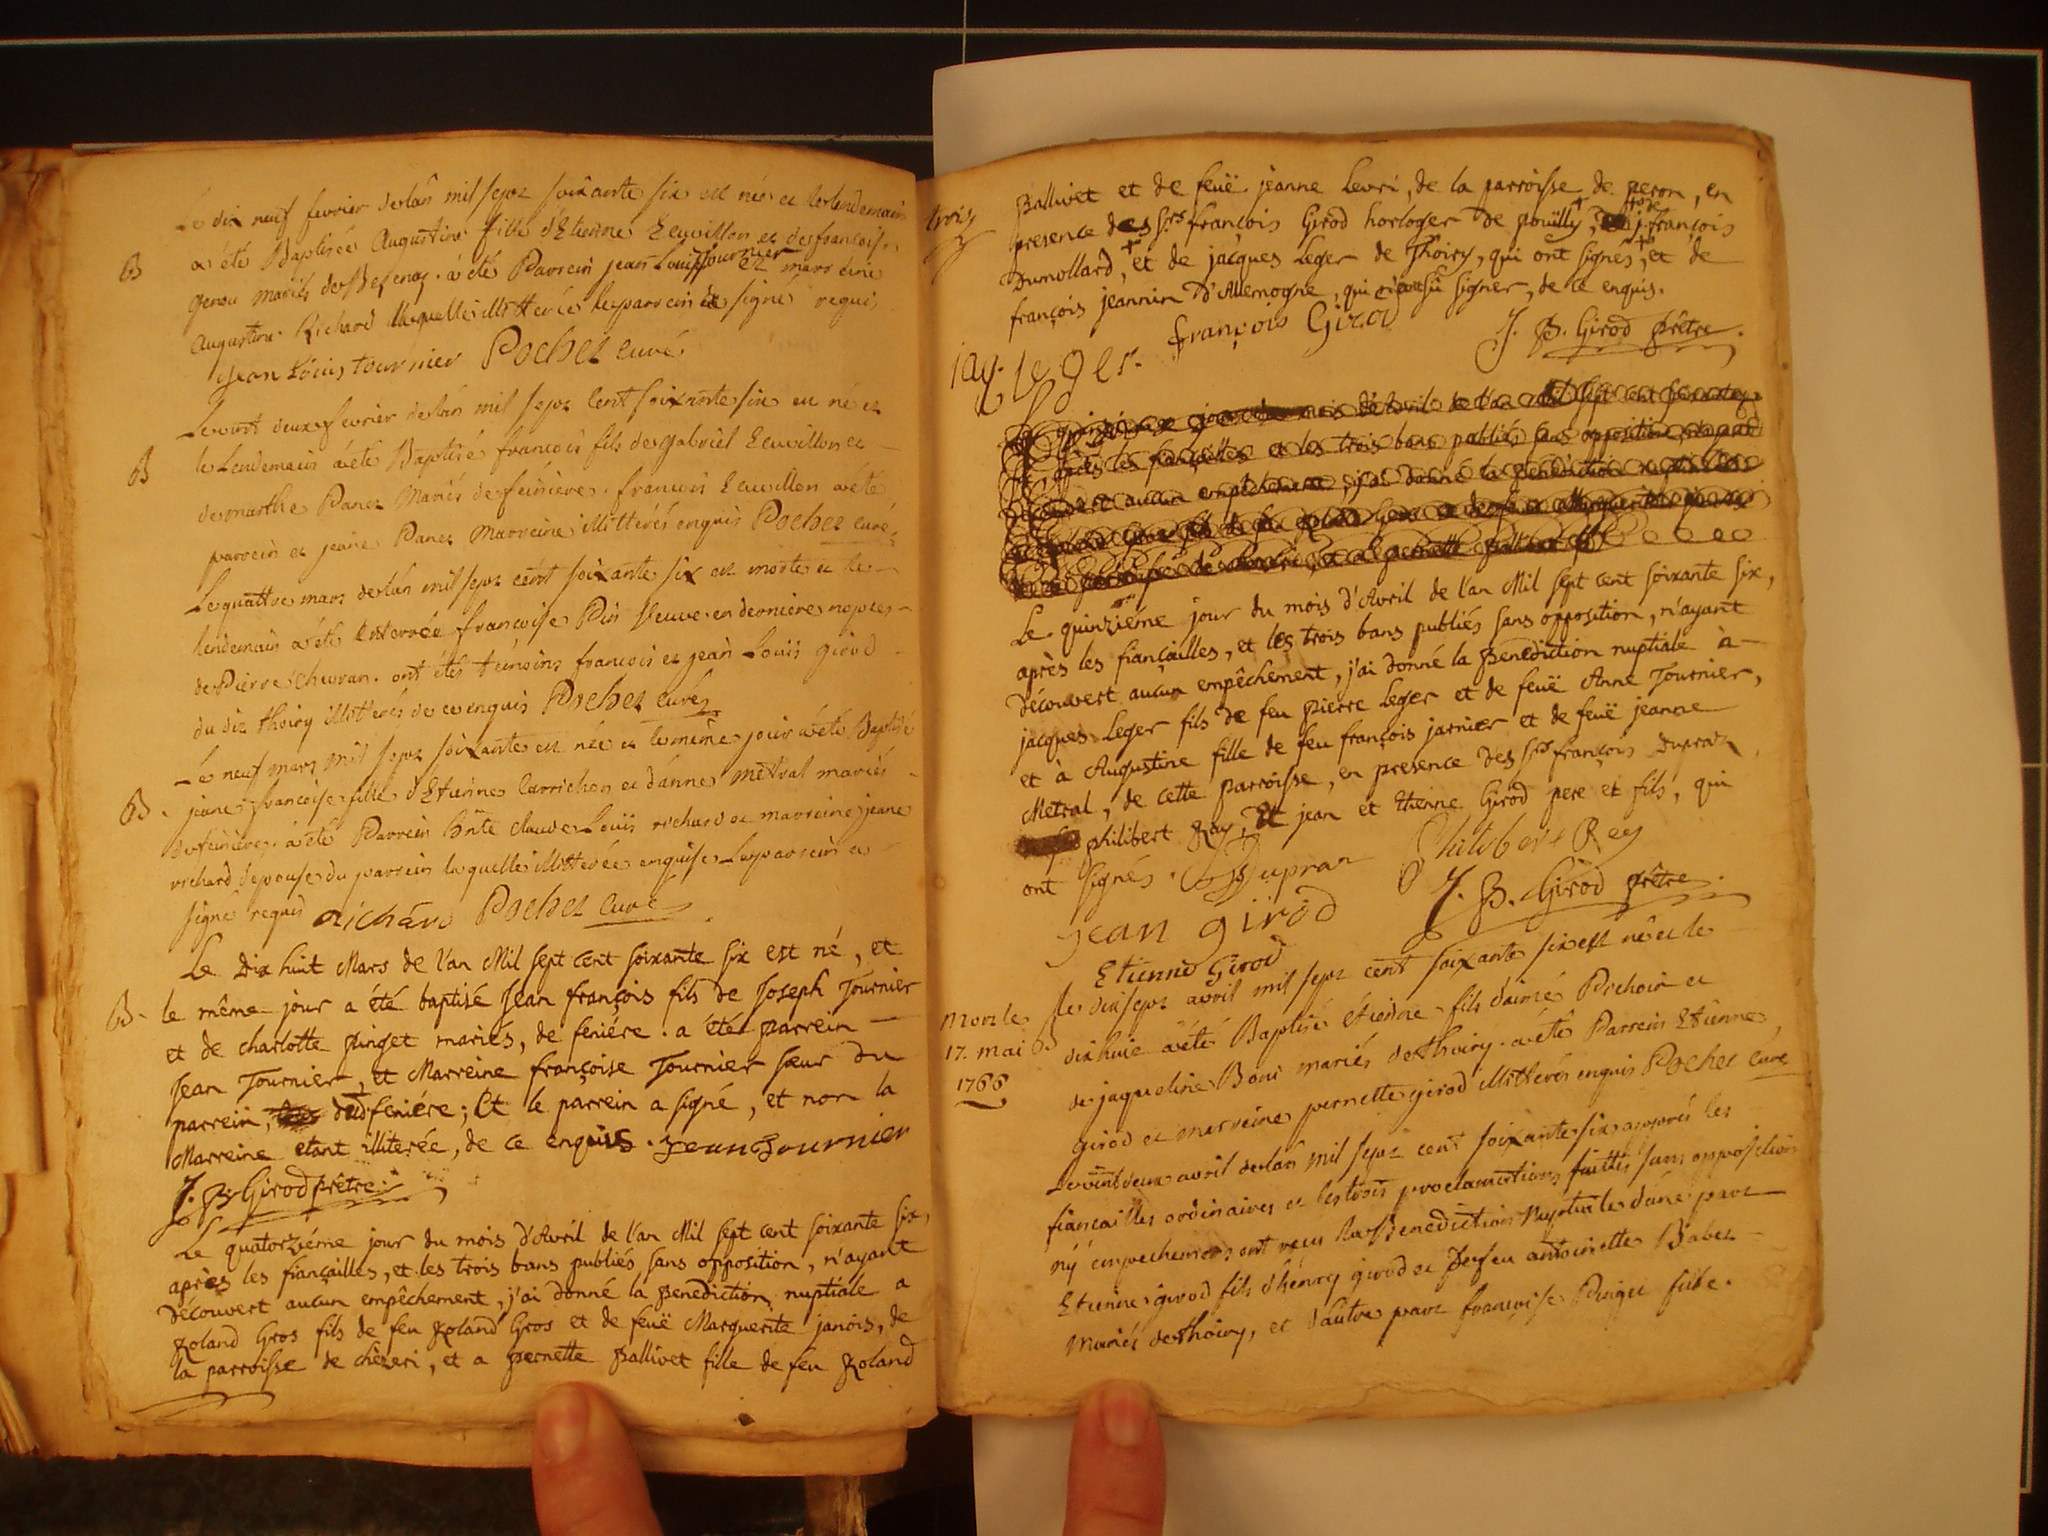 Le dix neuf fevrier de l'an mil sept soixante six est née et le lendemain
B a été Baptisée Augustine fille d'Etienne Ecuvillon et de francoise
gerou mariés de a été Parrein jean Louis tournier et marreine
Augustine Richard laquelle illiterée le parrein a signé requis
jean Louis tournier Pochet curé
Le vint deux fevrier de l'an mil sept cent soixante six est né et
B le Lendemain a été Baptisé francois fils de gabriel Ecuvillon et
de marthe Panet Mariés de feiniere. francois Ecuvillon a été
parrein et jeane Panet Marreine illitterés enquis Pochet curé
Le quattre mars de l'an mil sept cent soixante six est morte et le
lendemain a été Enterrée francoise Pin Veuve en derniere nopces
de Pierre chevran. ont étés témoins francois et jean Louis girod
du dit thoiry illitterés de ce enquis Pochet Curé
Le neuf mars mil sept soixante est née et le même jour a été Baptisé
B. jeane francoise fille d'Etienne Carrichon et d'anne métral mariés
de feiniere. a été Parrein hnte claude Louis richard et marreine jeane
richard epouse du parrein laquelle illitterée enquise Le parrein a
signé requis Richard Pochet Curé
Le Dix huit Mars de l'an Mil sept cent soixante six est né, et
B. le même jour a été baptisé Jean françois fils de Joseph Tournier
et de charlotte pinget mariés, de feniére. a été parrein
Jean Tournier, et Marreine françoise Tournier sœur du
parrein, dud feniére; Et le parrein a signé, et non la
Marreine etant illiterée, de ce enquis. Jean Tournier
J. B. Girod prêtre
Le quatorziéme jour du mois d'Avril de l'an Mil sept cent soixante six,
après les fiançailles, et les trois bans publiés sans opposition, n'ayant
découvert aucun empêchement, j'ai donné la Benediction nuptiale a
Roland Gros fils de feu Roland Gros et de feuë Marguerite janois, de
la parroisse de chézeri, et a pernette Ballivet fille de feu Roland
trois Ballivet et de feuë jeanne Levri, de la parroisse de peron, en
presence des Srs françois Girod horloger de pouilly, j françois
Dumollard, et de jacques Leger de Thoiry, qui ont signés, et de
françois jeannin d'Allemogne, qui n'a sû signer, de ce enquis.
françois Girod J. B. Girod prêtre.
jaq. leger.
quinziéme jour du mois d'Avril de l'an Mil sept cent soixante
après les fiançailles et les trois bans publiés sans opposition
aucun empêchement, j'ai donné la Benediction
Le quinziéme jour du mois d'Avril de l'an Mil sept cent soixante six,
après les fiançailles, et les trois bans publiés sans opposition, n'ayant
découvert aucun empêchement, j'ai donné la Benediction nuptiale à
jacques Leger fils de feu pierre Leger et de feuë Anne Tournier,
et à Augustine fille de feu françois jarnier et de feuë jeanne
Metral, de cette parroisse, en presence des Srs françois Dupraz
philibert Ray, Et jean et Etienne Girod pere et fils, qui
ont signés. Dupraz Philibert Rey
jean girod J. B. Girod prêtre.
Etienne Girod
Le dix sept avril mil sept cent soixante six est né et le
mort le 17. mai 1766 B dix huit a été Baptisé étienne fils d'aimé Prchoir et
de jaqueline Boni mariés de thoiry. a été Parrein Etienne
girod et marreine pernette girod illitterés enquis Pochet Curé
Le vint deux avril de l'an mil sept cent soixante six apprés les
fiancailles ordinaires et les trois proclamations faittes sans opposition
ny empechement ont reçu la Benediction Nuptiale d'une part
Etienne girod fils d'henry girod et de feu antoinette Babet
Mariés de thoiry, et d'autre part francoise Pinget fille.